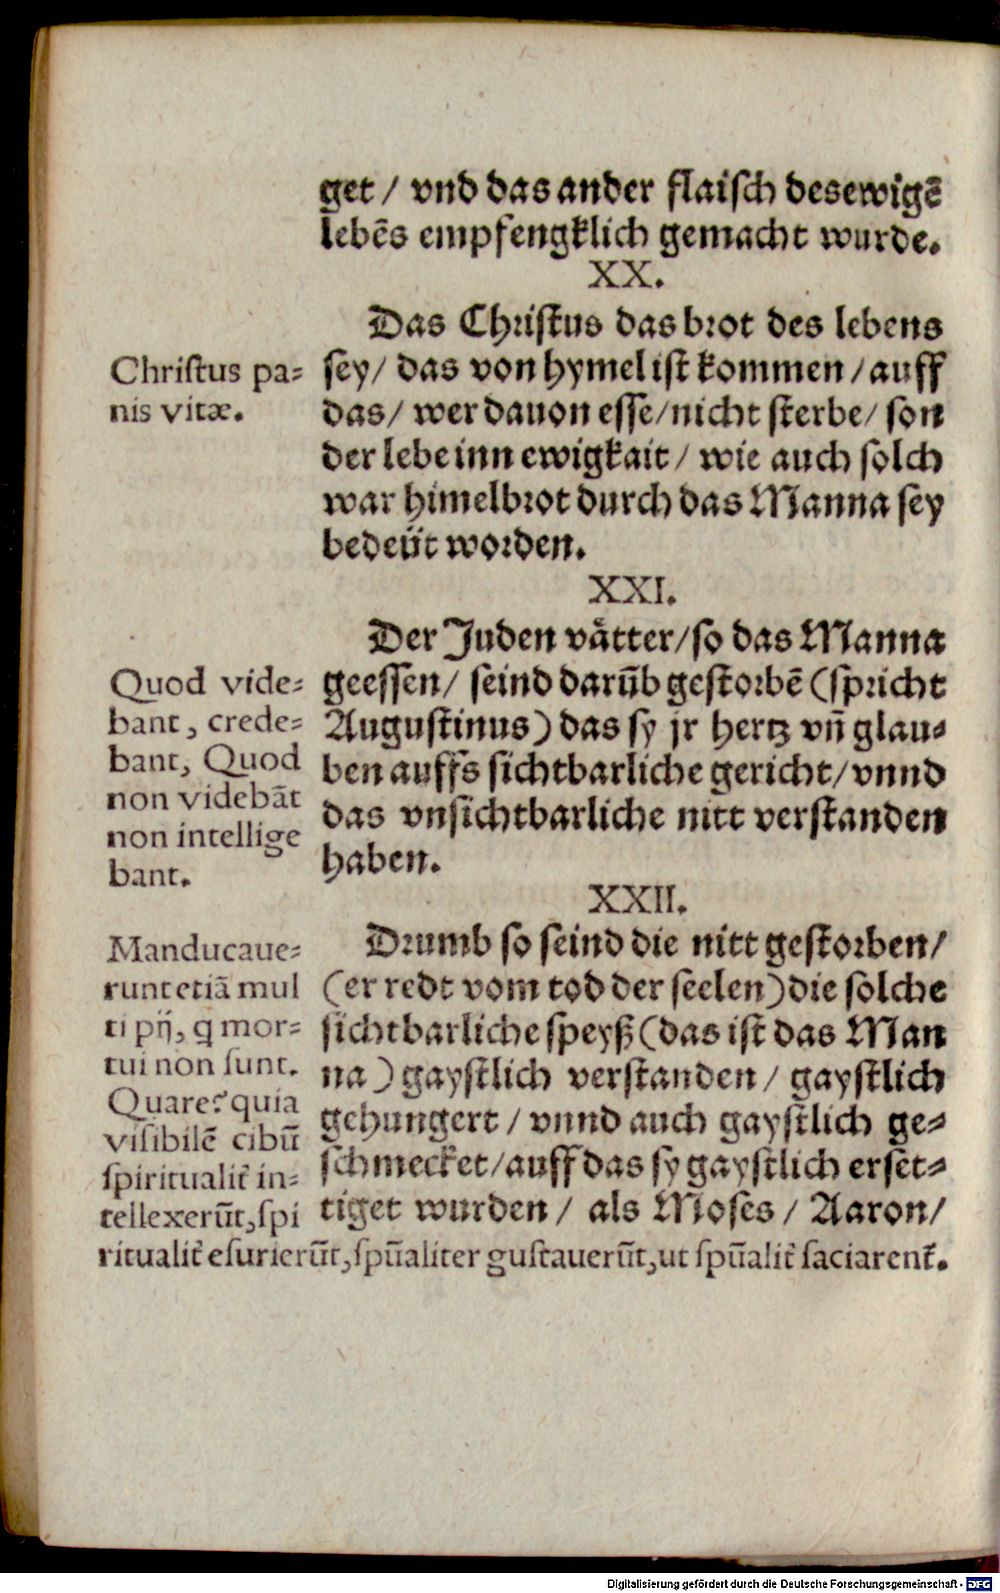 get / vnd das ander flaisch des ewigē
lebēs empfengklich gemacht wurde.
XX.
Das Christus das brot des lebens
sey / das von hymel ist kommen / auff
das / wer dauon esse / nicht sterbe / son
der lebe inn ewigkait / wie auch solch
war himelbrot durch das Manna sey
bedeüt worden.
Christus pa=
nis vitæ.
XXI.
Der Juden våtter / so das Manna
geessen / seind darūb gestorbē (spricht
Augustinus) das sy jr hertz vñ glau=
ben auffs sichtbarliche gericht / vnnd
das vnsichtbarliche nitt verstanden
haben.
Quod vide=
bant, crede=
bant, Quod
non videbāt
non intellige
bant.
XXII.
Drumb so seind die nitt gestorben /
(er redt vom tod der seelen) die solche
sichtbarliche speyß (das ist das Man
na) gaystlich verstanden / gaystlich
gehungert / vnnd auch gaystlich ge=
schmecket / auff das sy gaystlich erset=
tiget wurden / als Moses / Aaron /
Manducaue=
runt etiā mul
ti pij, q mor=
tui non sunt.
Quare? quia
visibilē cibū
spiritualit̃ in=
tellexerūt, spi
ritualit̃ esurierūt, spūaliter gustauerūt, ut spūalit̃ saciarent̃.
Digitalisierung gefördert durch die Deutsche Forschungsgemeinschaft - DFG